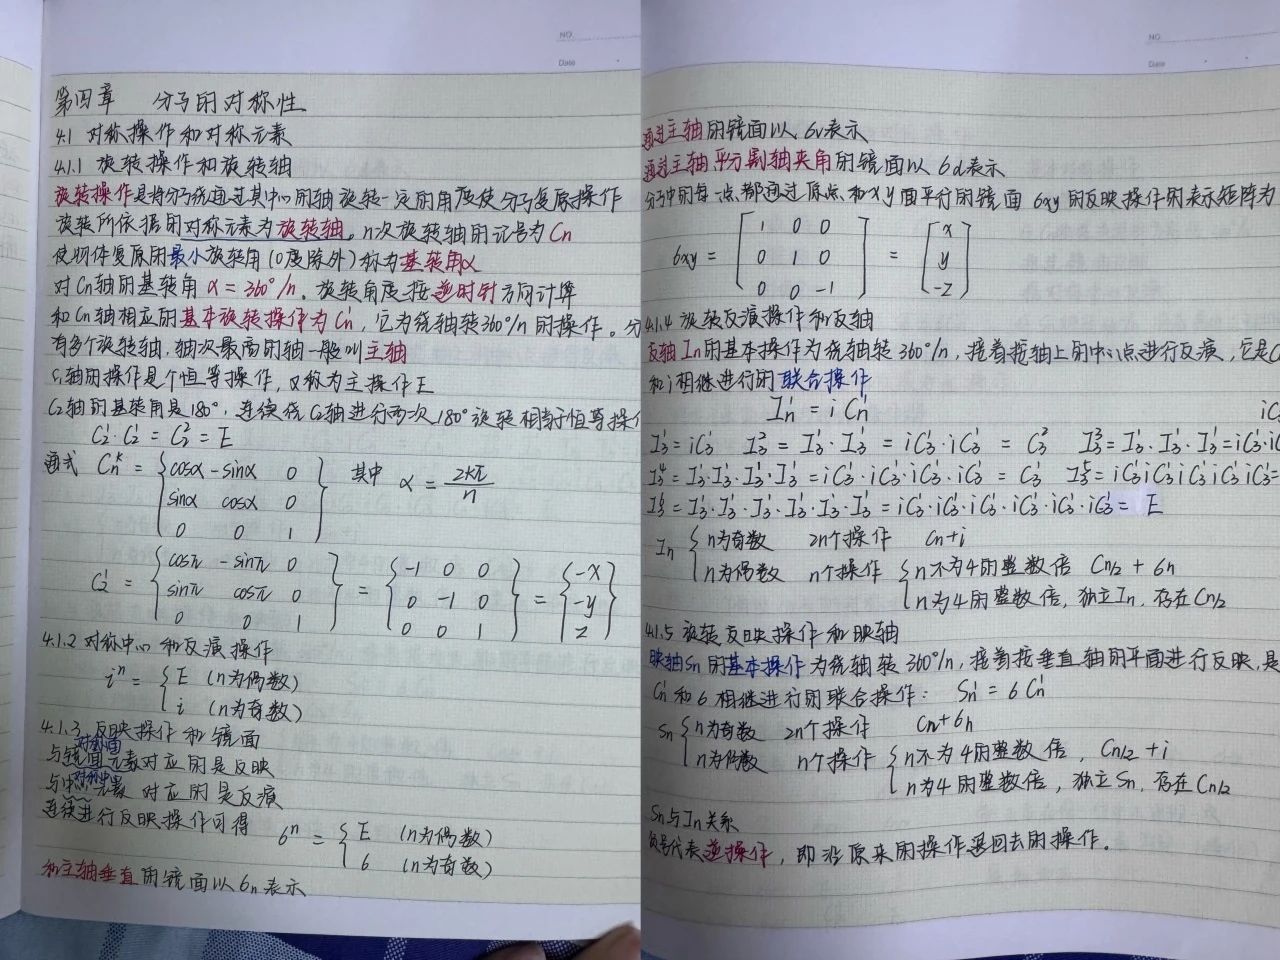 NO.
Date
第四章 分子的对称性
4.1 对称操作和对称元素
4.1.1 旋转操作和旋转轴
旋转操作是将分子绕通过其中心的轴旋转一定的角度使分子复原操作
旋转所依据的对称元素为旋转轴。n次旋转轴的记号为Cn
使物体复原的最小旋转角(0度除外)称为基转角α
对Cn轴的基转角 α = 360°/n。旋转角度按逆时针方向计算
和Cn轴相应的基本旋转操作为Cn¹,它为绕轴转360°/n的操作。分
有多个旋转轴,轴次最高的轴一般叫主轴
C₁轴的操作是个恒等操作,又称为主操作E
C₂轴的基转角是180°,连续绕C₂轴进行两次180°旋转相当于恒等操作
C₂¹·C₂¹ = C₂² = E
通式 Cnᵏ = {cosα -sinα 0 其中 α = 2kπ/n
sinα cosα 0
0 0 1}
C₂¹ = {cosπ -sinπ 0 = {-1 0 0 = {-x
sinπ cosπ 0 0 -1 0 -y
0 0 1} 0 0 1} z}
4.1.2 对称中心和反演操作
iⁿ = {E (n为偶数)
i (n为奇数)
4.1.3 反映操作和镜面
对称面
与镜面元素对应的是反映
对称中心
与中心元素 对应的是反演
连续进行反映操作可得 6ⁿ = {E (n为偶数)
6 (n为奇数)
和主轴垂直的镜面以6n表示
NO.
Date
通过主轴的镜面以6v表示
通过主轴平分副轴夹角的镜面以6d表示
分子中的每一点都通过原点和xy面平行的镜面 6xy的反映操作的表示矩阵为
6xy = [1 0 0 = [x
0 1 0 y
0 0 -1] -z]
4.1.4 旋转反演操作和反轴
反轴In的基本操作为绕轴转360°/n,接着按轴上的中心点进行反演,它是C
和i相继进行的联合操作
In¹ = iCn¹ iC
I₃¹ = iC₃¹ I₃² = I₃¹·I₃¹ = iC₃¹·iC₃¹ = C₃² I₃³ = I₃¹·I₃¹·I₃¹ = iC₃¹·iC
I₃⁴ = I₃¹·I₃¹·I₃¹·I₃¹ = iC₃¹·iC₃¹·iC₃¹·iC₃¹ = C₃¹ I₃⁵ = iC₃¹iC₃¹iC₃¹iC₃¹iC₃¹=
I₃⁶ = I₃¹·I₃¹·I₃¹·I₃¹·I₃¹·I₃¹ = iC₃¹·iC₃¹·iC₃¹·iC₃¹·iC₃¹·iC₃¹ = E
In {n为奇数 2n个操作 Cn+i
n为偶数 n个操作 {n不为4的整数倍 Cn/2 + 6n
n为4的整数倍,独立In,存在Cn/2
4.1.5 旋转反映操作和映轴
映轴Sn的基本操作为绕轴转360°/n,接着按垂直轴的平面进行反映,是
Cn¹和6相继进行的联合操作: Sn¹ = 6Cn¹
Sn {n为奇数 2n个操作 Cn+6n
n为偶数 n个操作 {n不为4的整数倍,Cn/2 + i
n为4的整数倍,独立Sn,存在Cn/2
Sn与In关系
负号代表逆操作,即沿原来的操作退回去的操作。